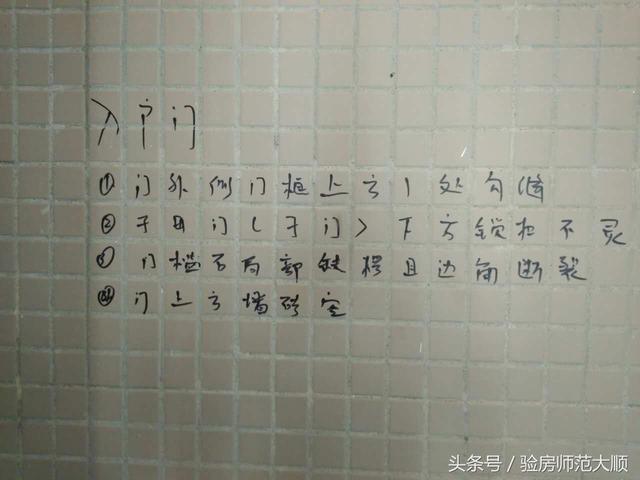 入户门
①门外侧门框上方1处勾缝
②子母门(子门)下方锁扣不灵
③门槛石局部缺楞且边角断裂
④门上方墙砖空
头条号/验房师范大顺